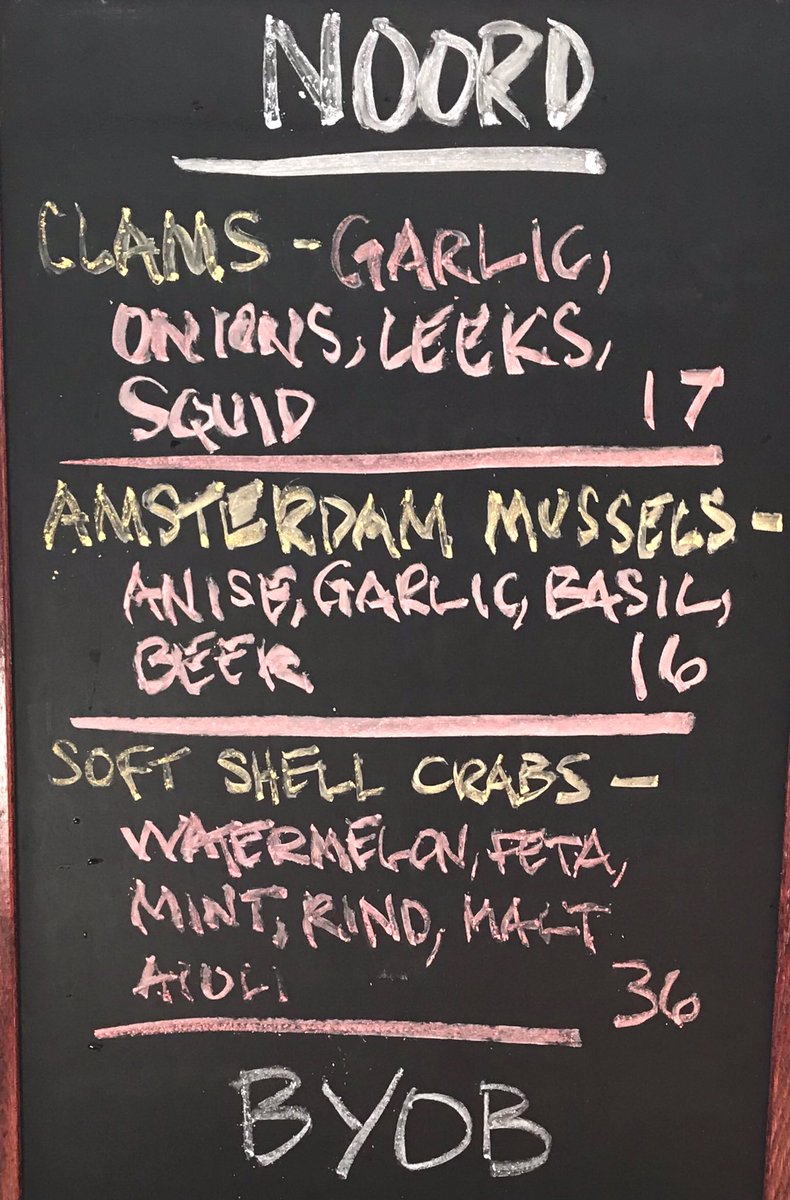 NOORD
CLAMS - GARLIC,
ONIONS, LEEKS,
SQUID 17
AMSTERDAM MUSSELS -
ANISE, GARLIC, BASIL,
BEER 16
SOFT SHELL CRABS -
WATERMELON, FETA,
MINT, RIND, MALT
AIOLI 36
BYOB